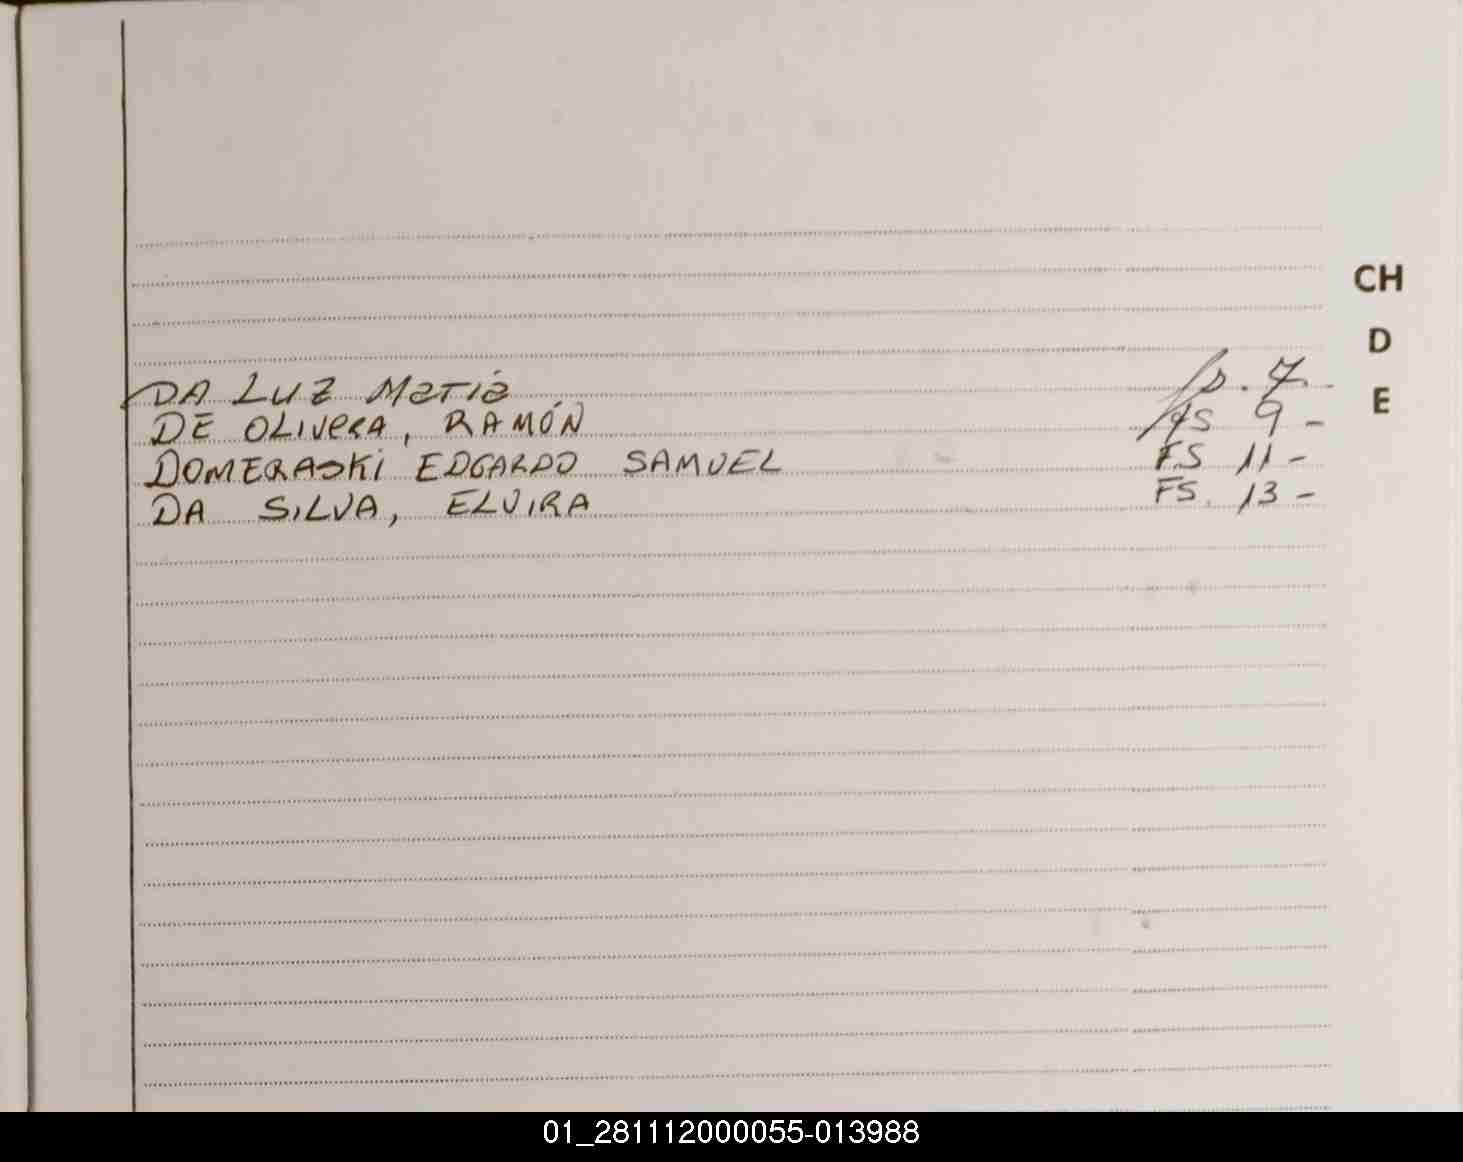 CH
D
E
DA LUZ María fs. 7.-
DE OLIVERA, RAMÓN fs 9-
DOMERASKI EDGARDO SAMUEL FS 11-
DA SILVA, ELVIRA FS. 13-
01_281112000055-013988